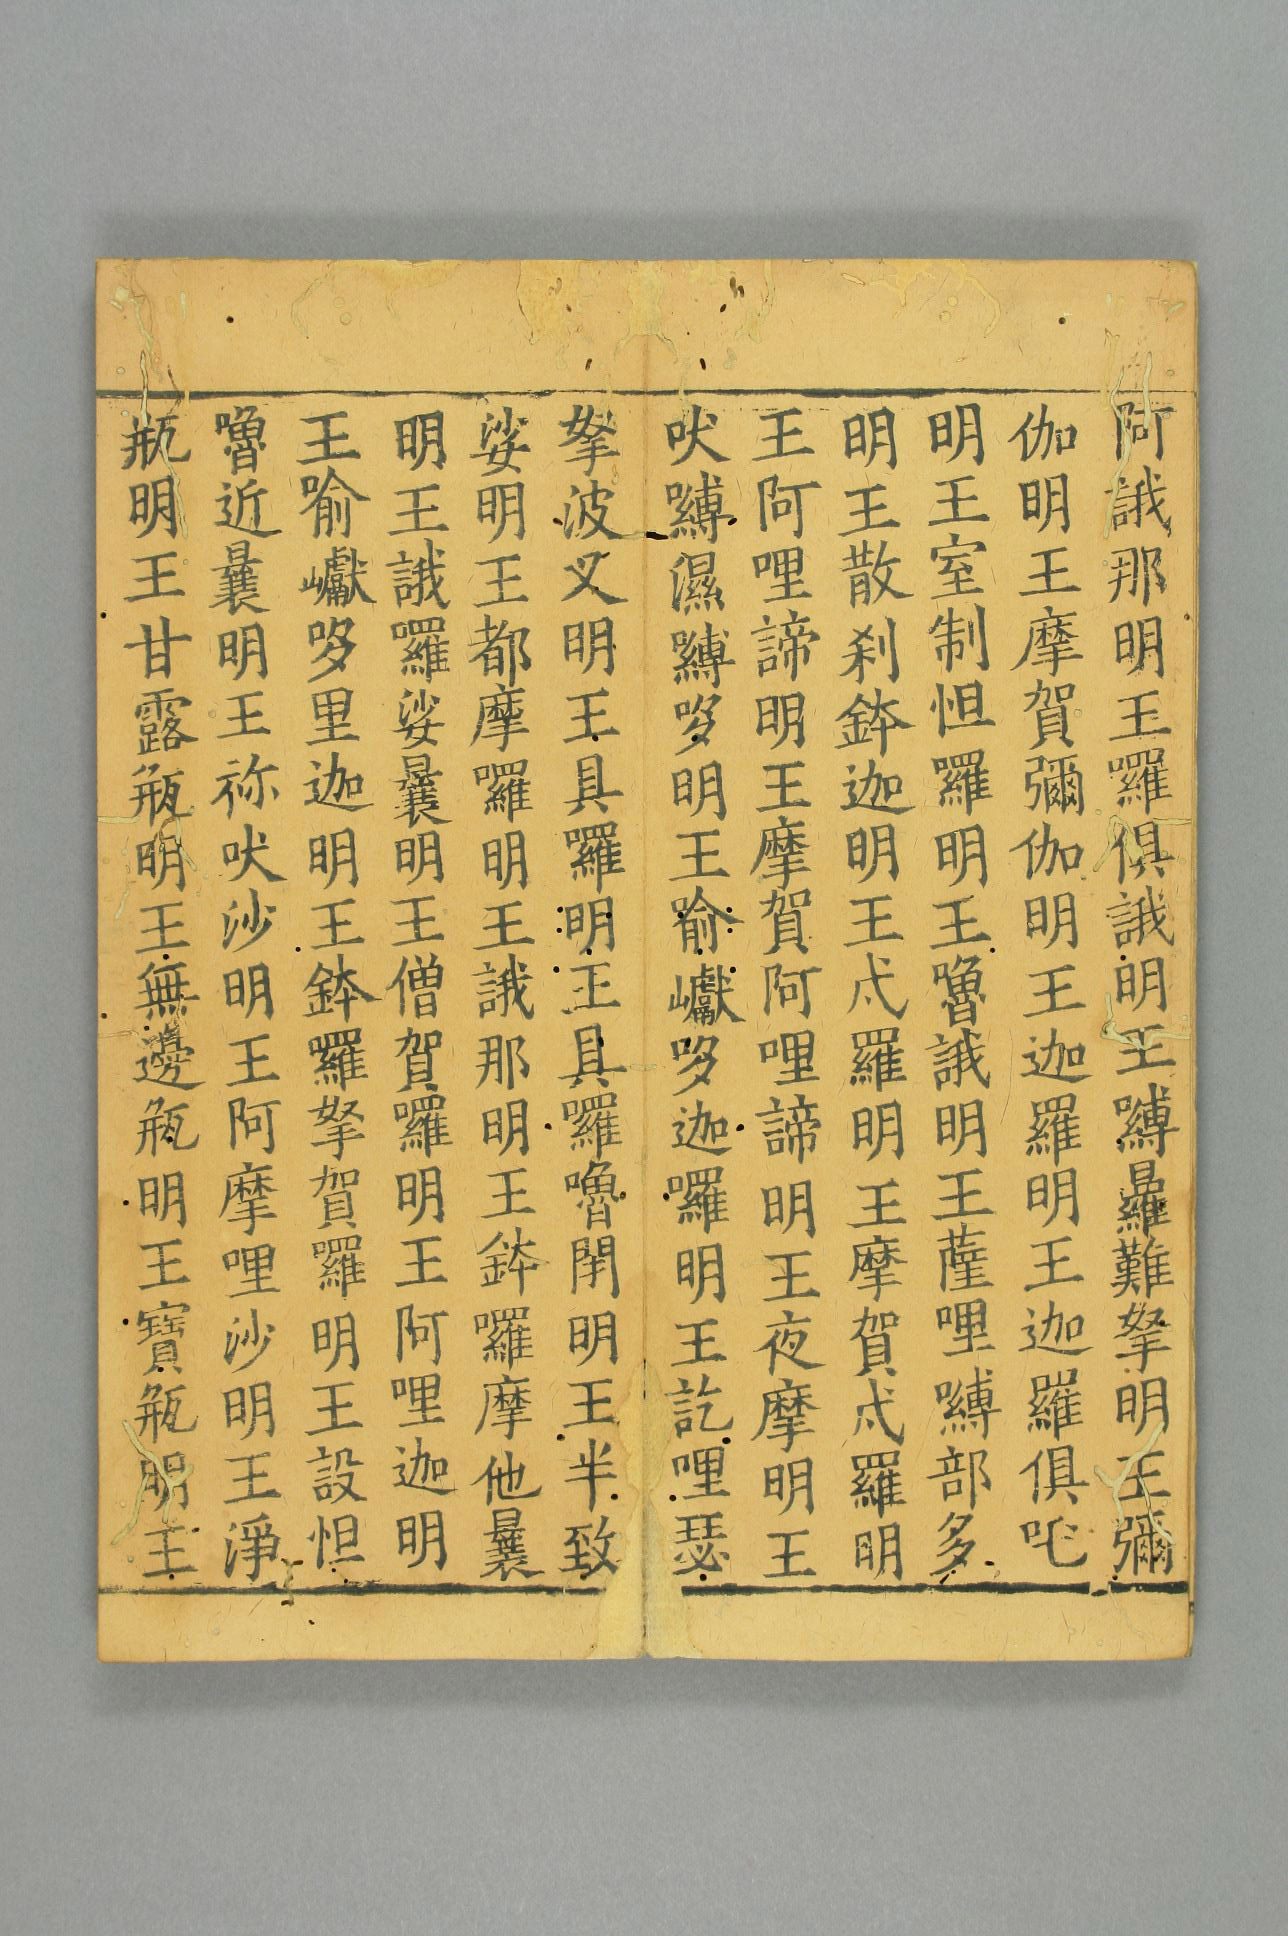 阿誐那明王囉俱誐明王嚩曩難拏明王彌
伽明王摩賀彌伽明王迦羅明王迦羅俱吒
明王室制怛囉明王嚕誐明王薩哩嚩部多
明王散刹鉢迦明王尐羅明王摩賀尐羅明
王阿哩諦明王摩賀阿哩諦明王夜摩明王
吠嚩濕嚩哆明王喻巘哆迦囉明王訖哩瑟
拏波叉明王具囉明王具囉嚕閉明王半致
娑明王都摩囉明王誐那明王鉢囉摩他曩
明王誐囉娑曩明王僧賀囉明王阿哩迦明
王喻巘哆里迦明王鉢囉拏賀囉明王設怛
嚕近曩明王祢吠沙明王阿摩哩沙明王淨
瓶明王甘露瓶明王無邊瓶明王寶瓶明王